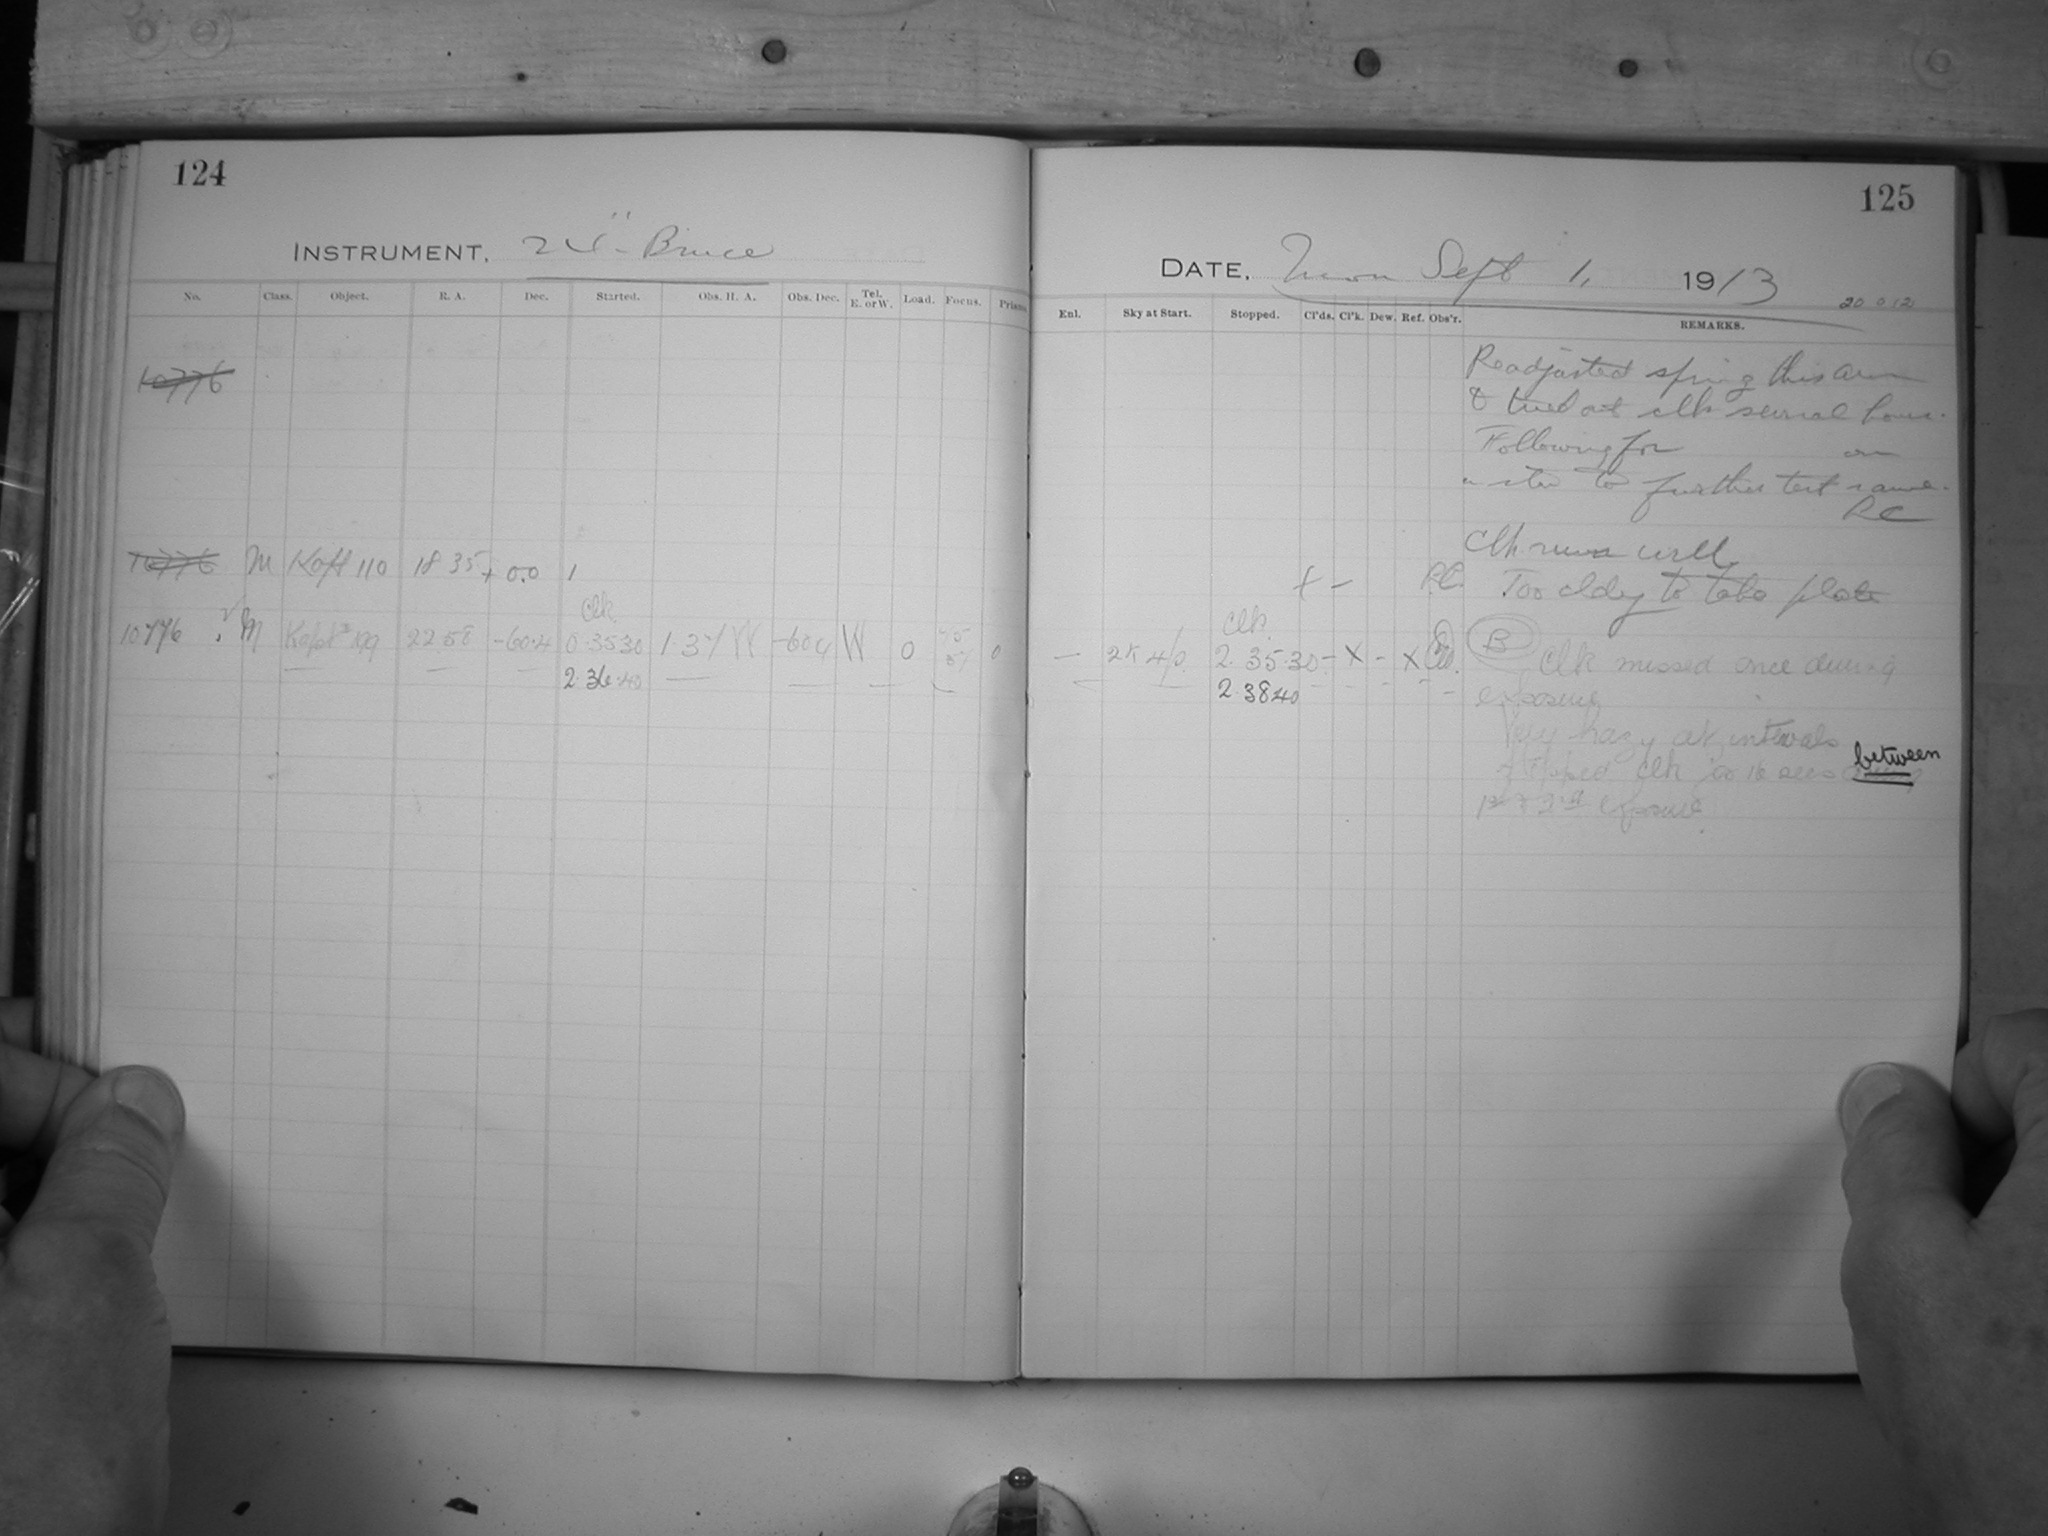 124
INSTRUMENT. 24"- Bruce
No. Class. Object. R. A. Dec. Started. Obs. H. A. Obs. Dec. Tel. E. or W. Load. Focus. Prism
10776
10776 M Kapt 110 18 35 + 0.0 1
Clk
10776 M Kapt 199 22 58 -60.4 0.35 30 1.37 W -60.4 W 0 0
2.36.40
125
DATE. Sept 1, 1913
20 0 12
Enl. Sky at Start. Stopped. Cl'ds. Cl'k. Dew. Ref. Obs'r. REMARKS.
Readjusted spring this am
& tried out clk several hours.
Following for on
to further test same.
RC
Clk runs well
+ - RC. Too cldy to take plate
Clk.
- 2.35.30 - X - X B Clk missed once during
2.38 40 exposure
Very hazy at intervals
clk secs between
1st & 2nd exposure